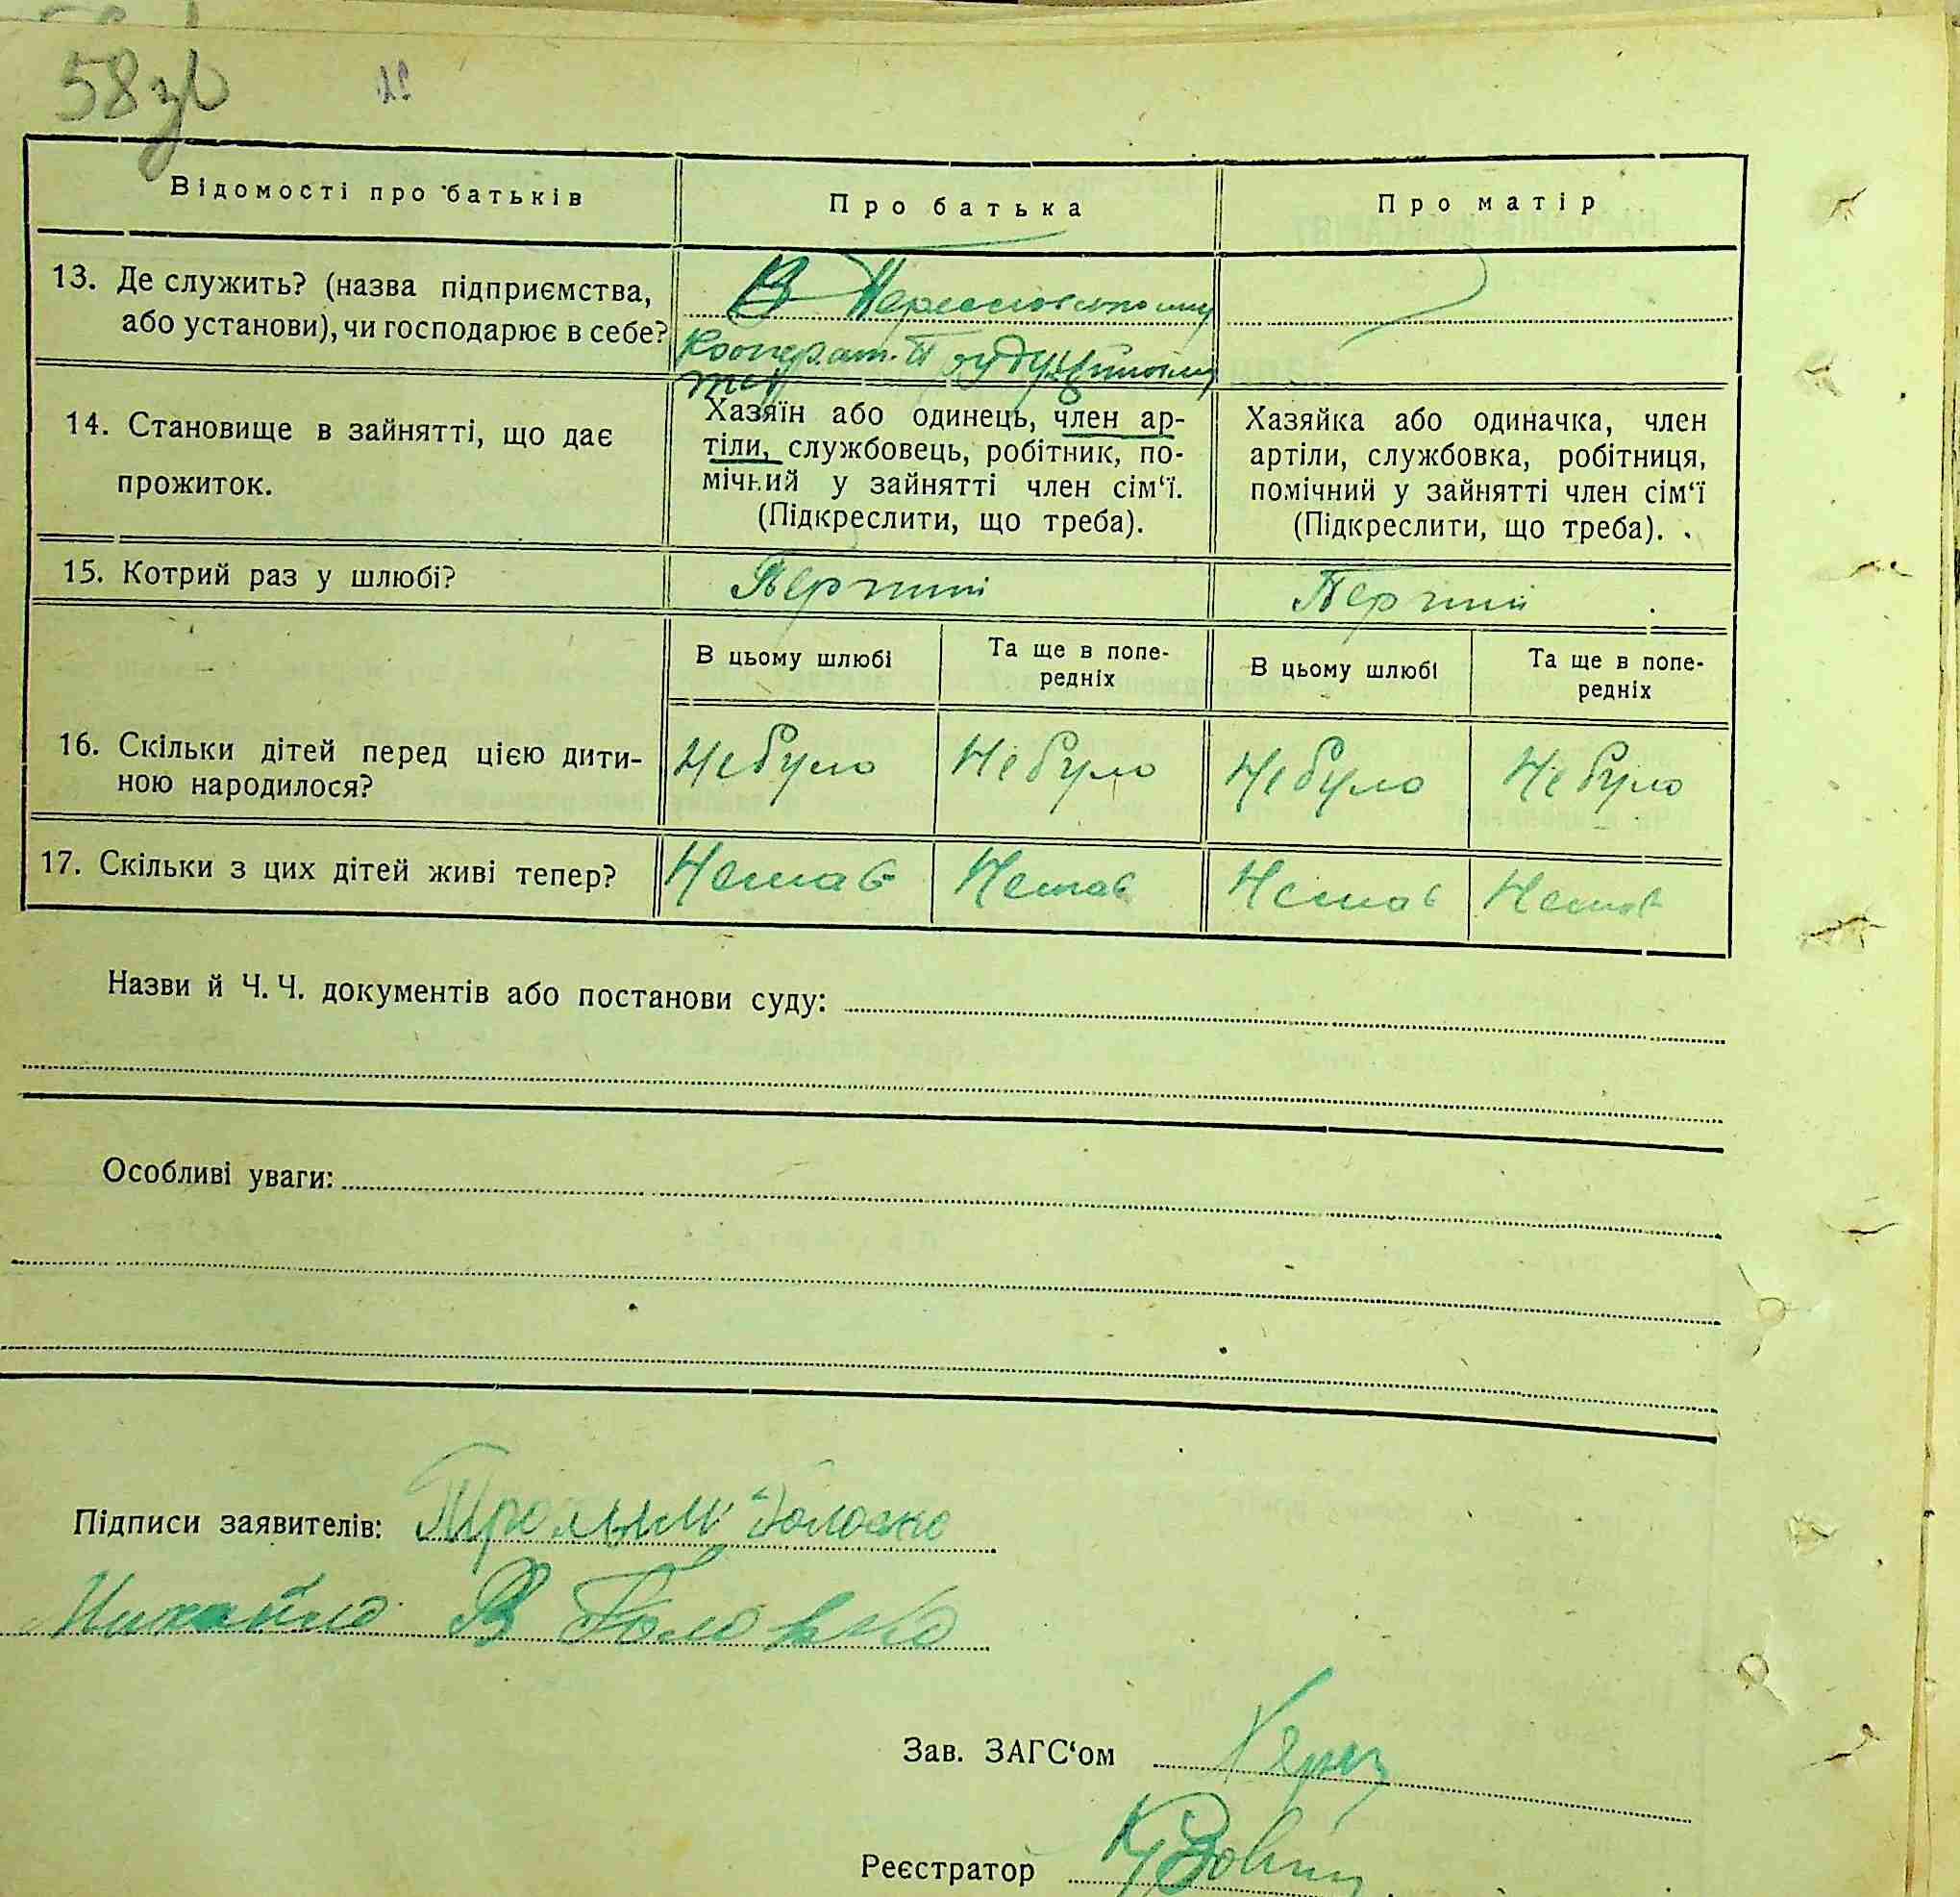 58зв
Відомості про батьків
Про батька
Про матір
13. Де служить? (назва підприємства,
або установи), чи господарює в себе?
В
Кооперат.
14. Становище в зайнятті, що дає
прожиток.
Хазяїн або одинець, член ар-
тіли, службовець, робітник, по-
мічний у зайнятті член сім‘ї.
(Підкреслити, що треба).
Хазяйка або одиначка, член
артіли, службовка, робітниця,
помічний у зайнятті член сім‘ї
(Підкреслити, що треба).
15. Котрий раз у шлюбі?
Перший
Перший
В цьому шлюбі
Та ще в попе-
редніх
В цьому шлюбі
Та ще в попе-
редніх
16. Скільки дітей перед цією дити-
ною народилося?
Не було
Не було
Не було
Не було
17. Скільки з цих дітей живі тепер?
Немає
Немає
Немає
Немає
Назви й Ч. Ч. документів або постанови суду:
Особливі уваги:
Підписи заявителів: Головко
Михайло В Головко
Зав. ЗАГС‘ом
Реєстратор